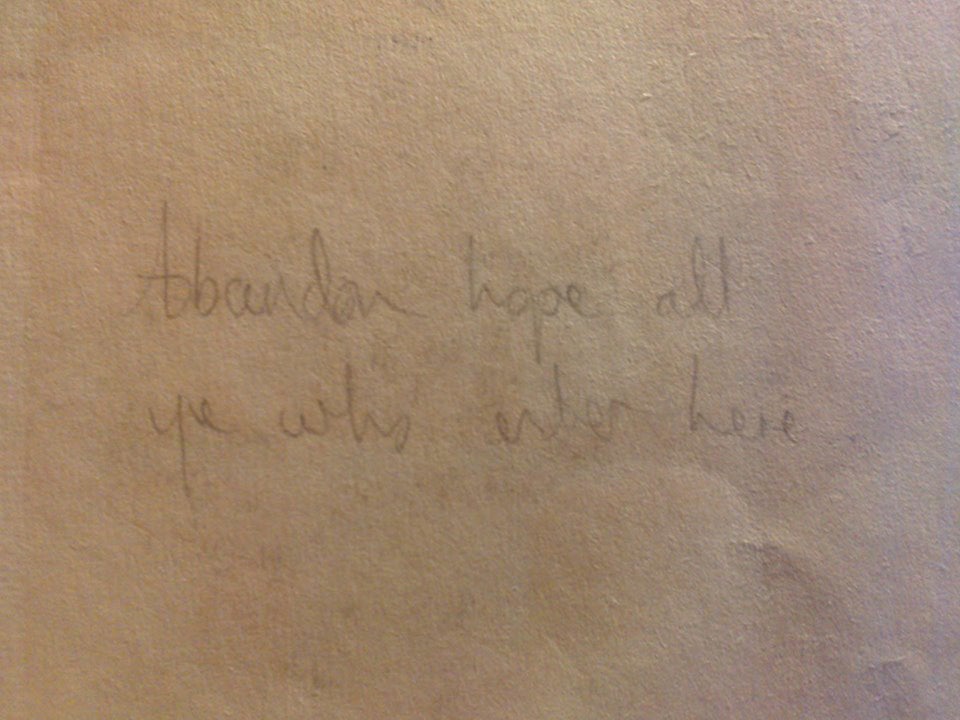 Abandon hope all
ye who enter here